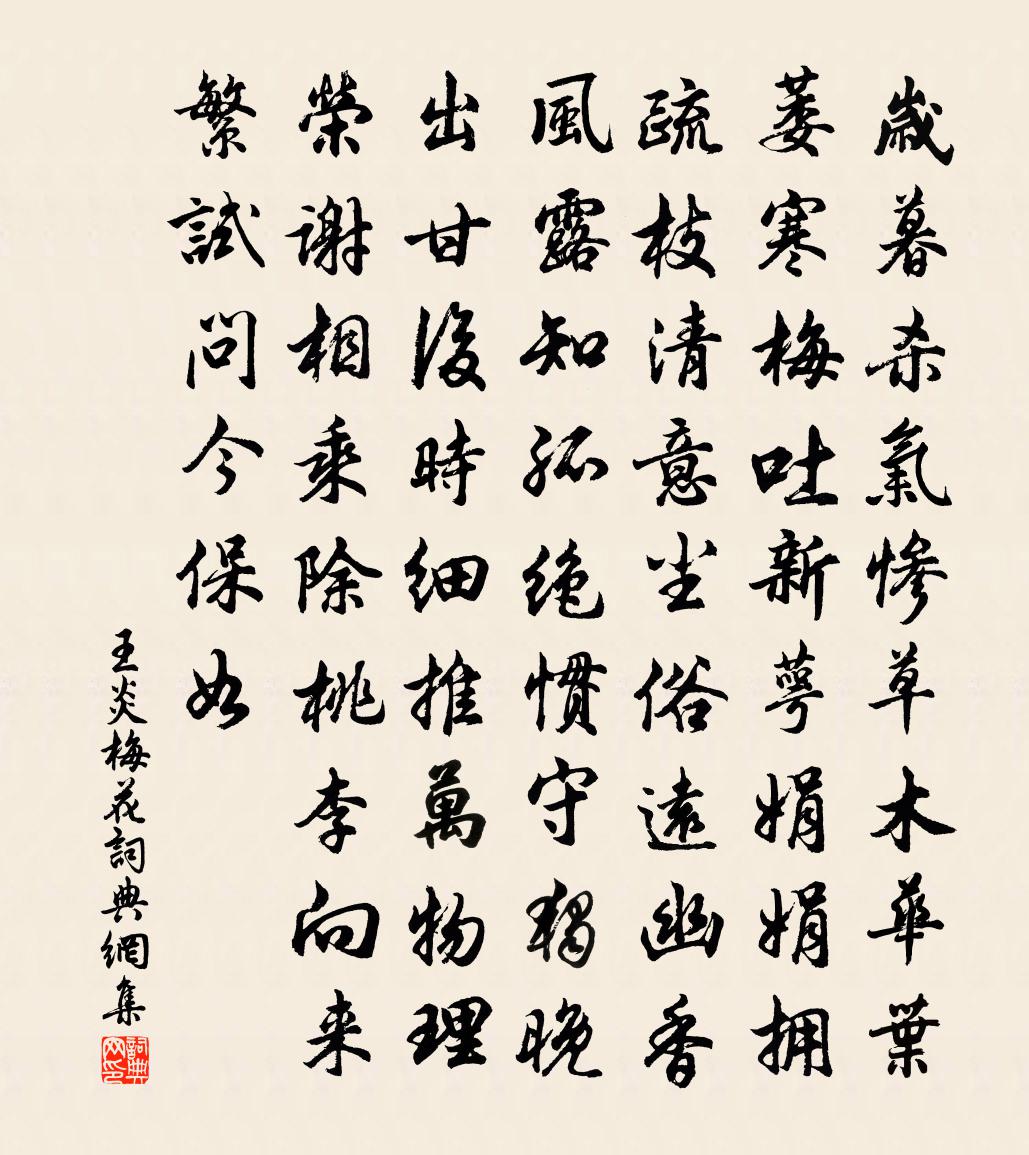 歲暮杀氣慘草木華葉
萎寒梅吐新萼娟娟拥
疏枝清意尘俗遠幽香
風露知孤绝慣守獨晚
出甘後時细推萬物理
榮謝相乘除桃李向来
繁試問今保如
王炎梅花詞典網集
詞典网印